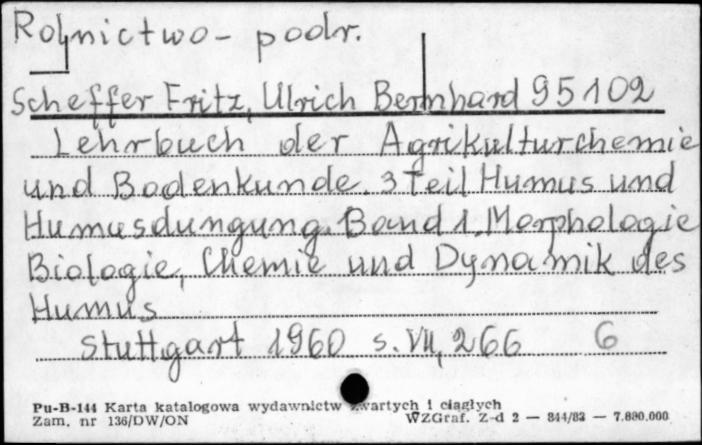 Rolnictwo - podr.
Scheffer Fritz, Ulrich Bernhard 95102
Lehrbuch der Agrikulturchemie
und Bodenkunde. 3 Teil Humus und
Humusdungung. Band 1. Morphologie
Biologie, Chemie und Dynamik des
Humus
Stuttgart 1960 s. VII, 266 6
Pu-B-144 Karta katalogowa wydawnictw zwartych i ciągłych
Zam. nr 136/DW/ON WZGraf. Z-d 2 — 844/83 — 7.880.000